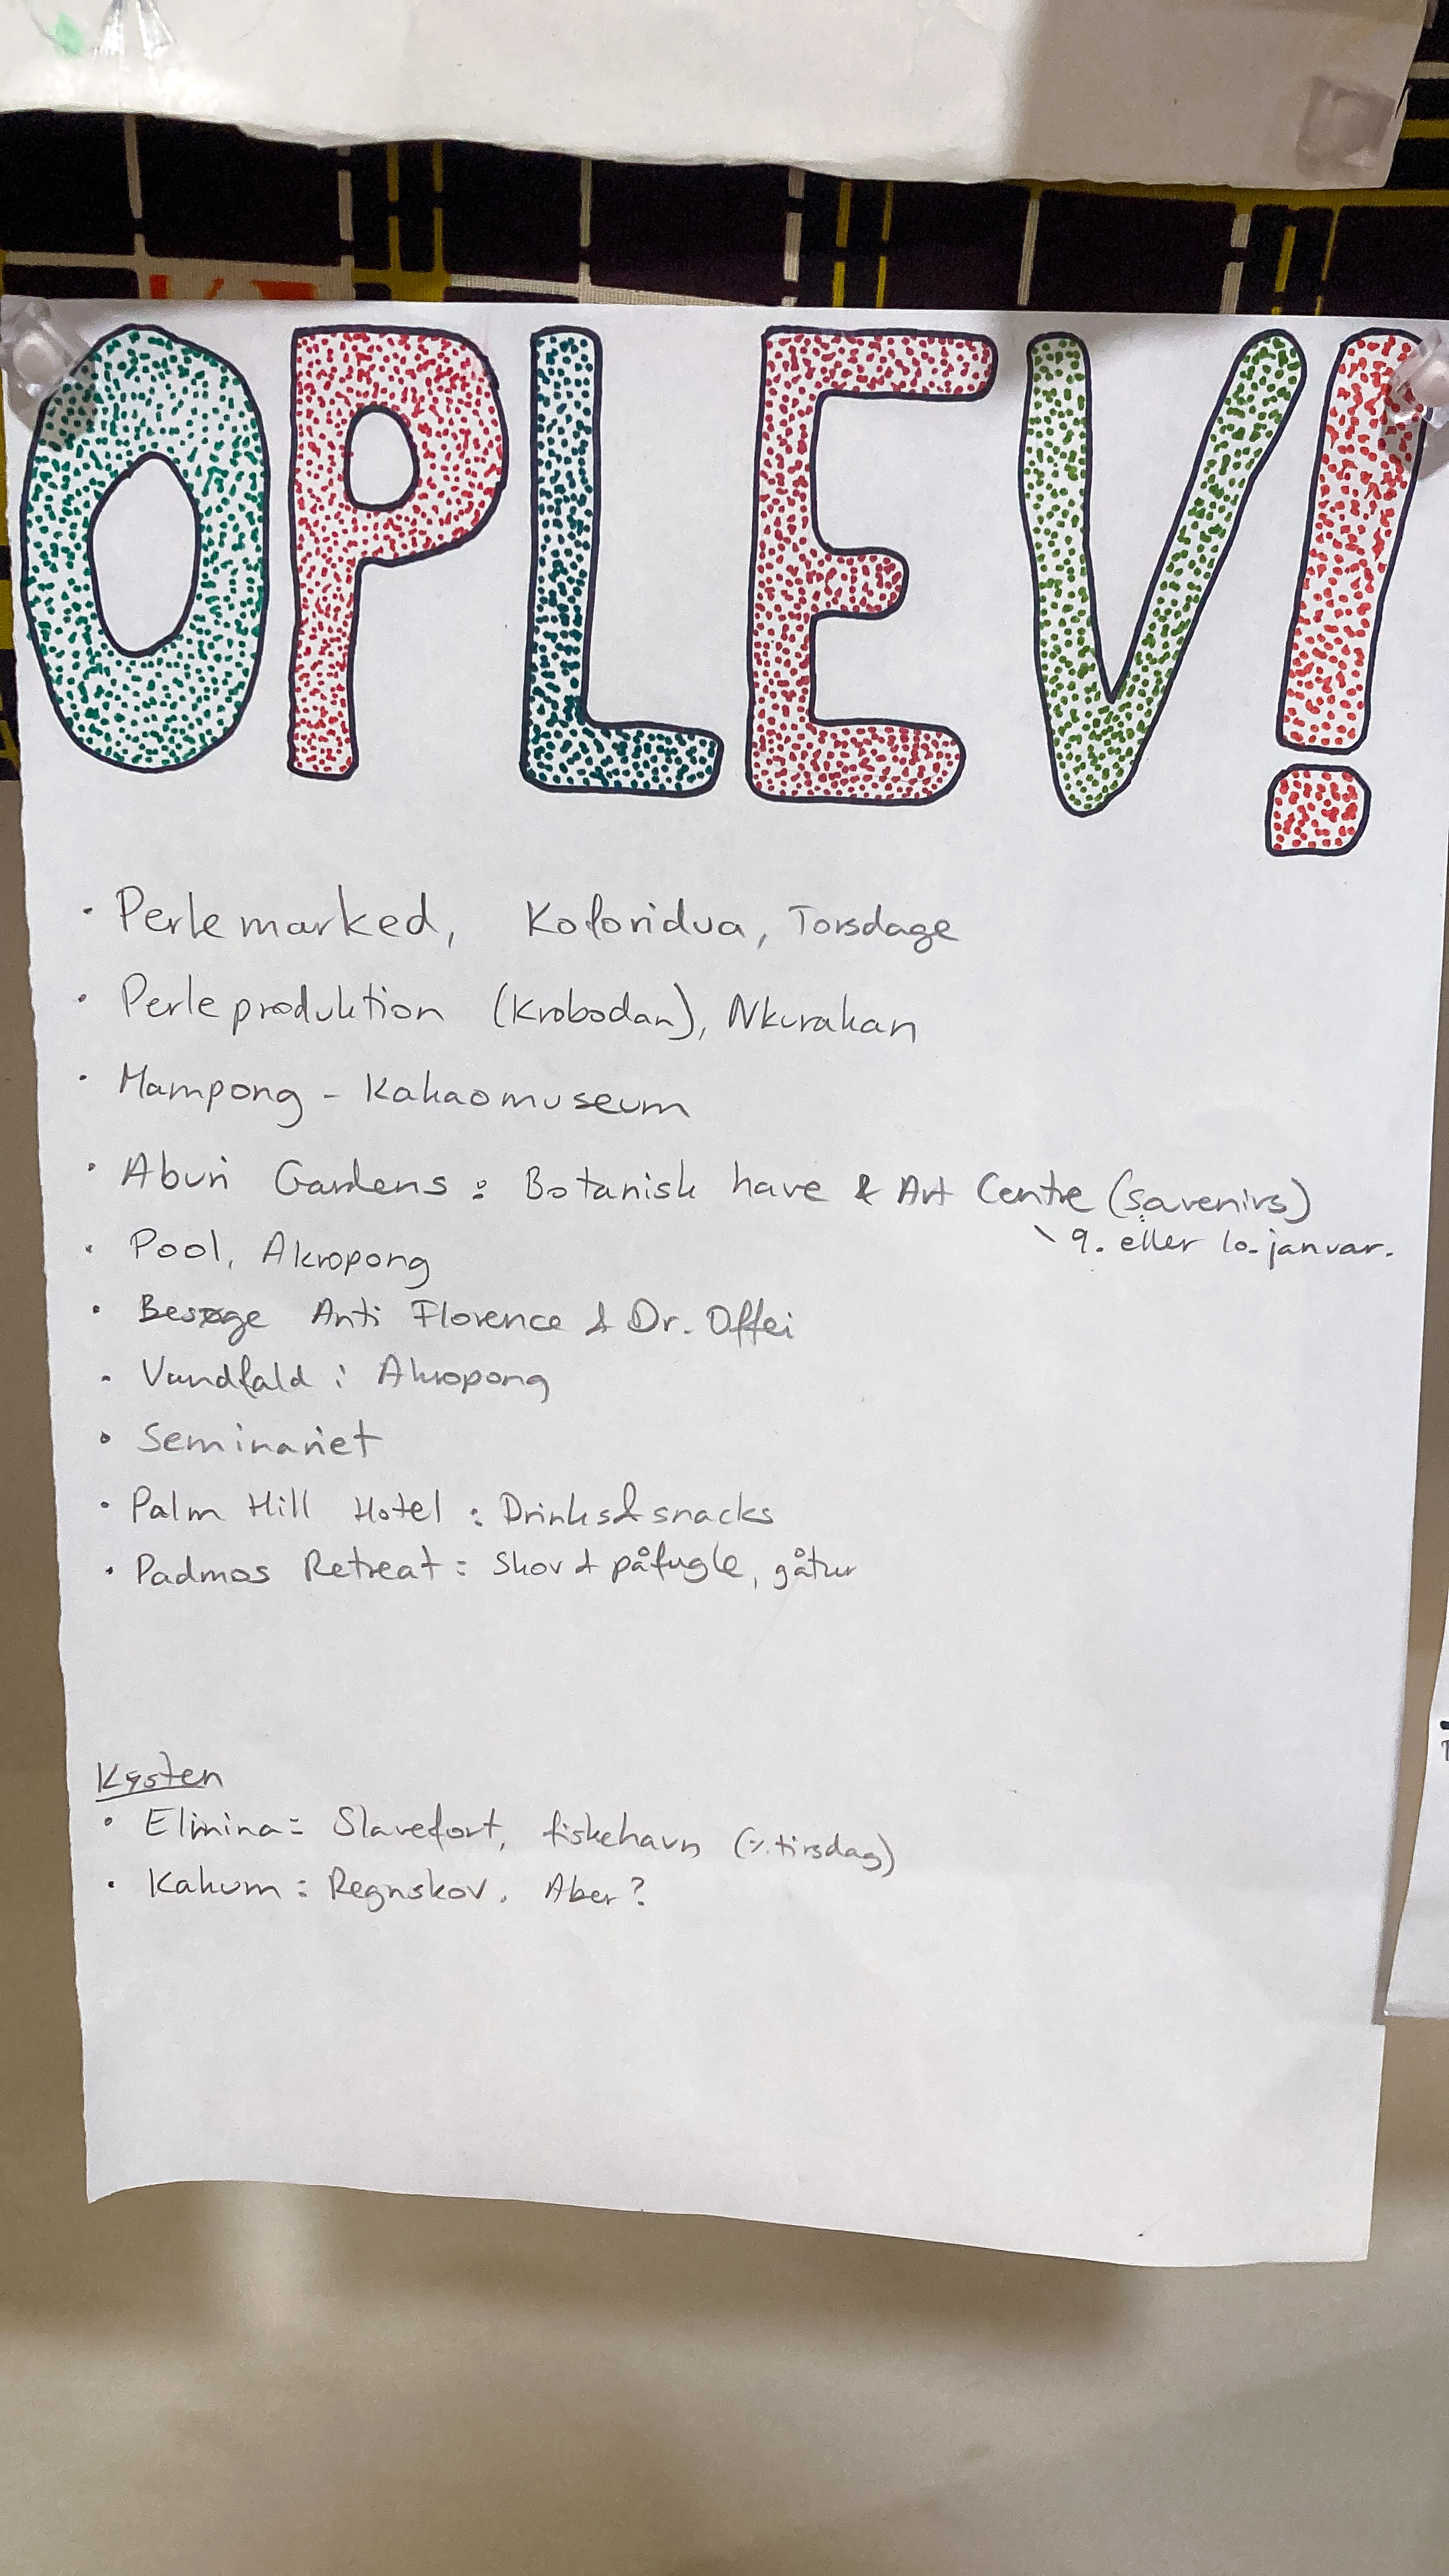 OPLEV!
· Perlemarked, Koforidua, Torsdage
· Perleproduktion (Krobodan), Nkurakan
· Mampong - Kakaomuseum
· Aburi Gardens: Botanisk have & Art Centre (souvenirs)
9. eller 10. januar.
· Pool, Akropong
· Besøge Anti Florence & Dr. Offei
· Vandfald: Akropong
· Seminariet
· Palm Hill Hotel: Drinks & snacks
· Padmos Retreat: Skov & påfugle, gåtur
Kysten
· Elmina: Slavefort, fiskehavn (÷ tirsdag)
· Kakum: Regnskov. Aber?